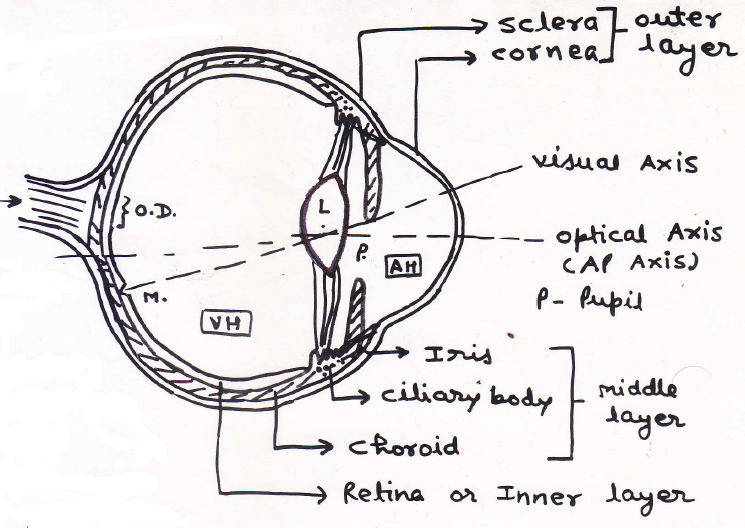 sclera
cornea
outer
layer
visual Axis
O.D.
L
P.
AH
optical Axis
(AP Axis)
P- Pupil
M.
VH
Iris
ciliary body
middle
layer
choroid
Retina or Inner layer